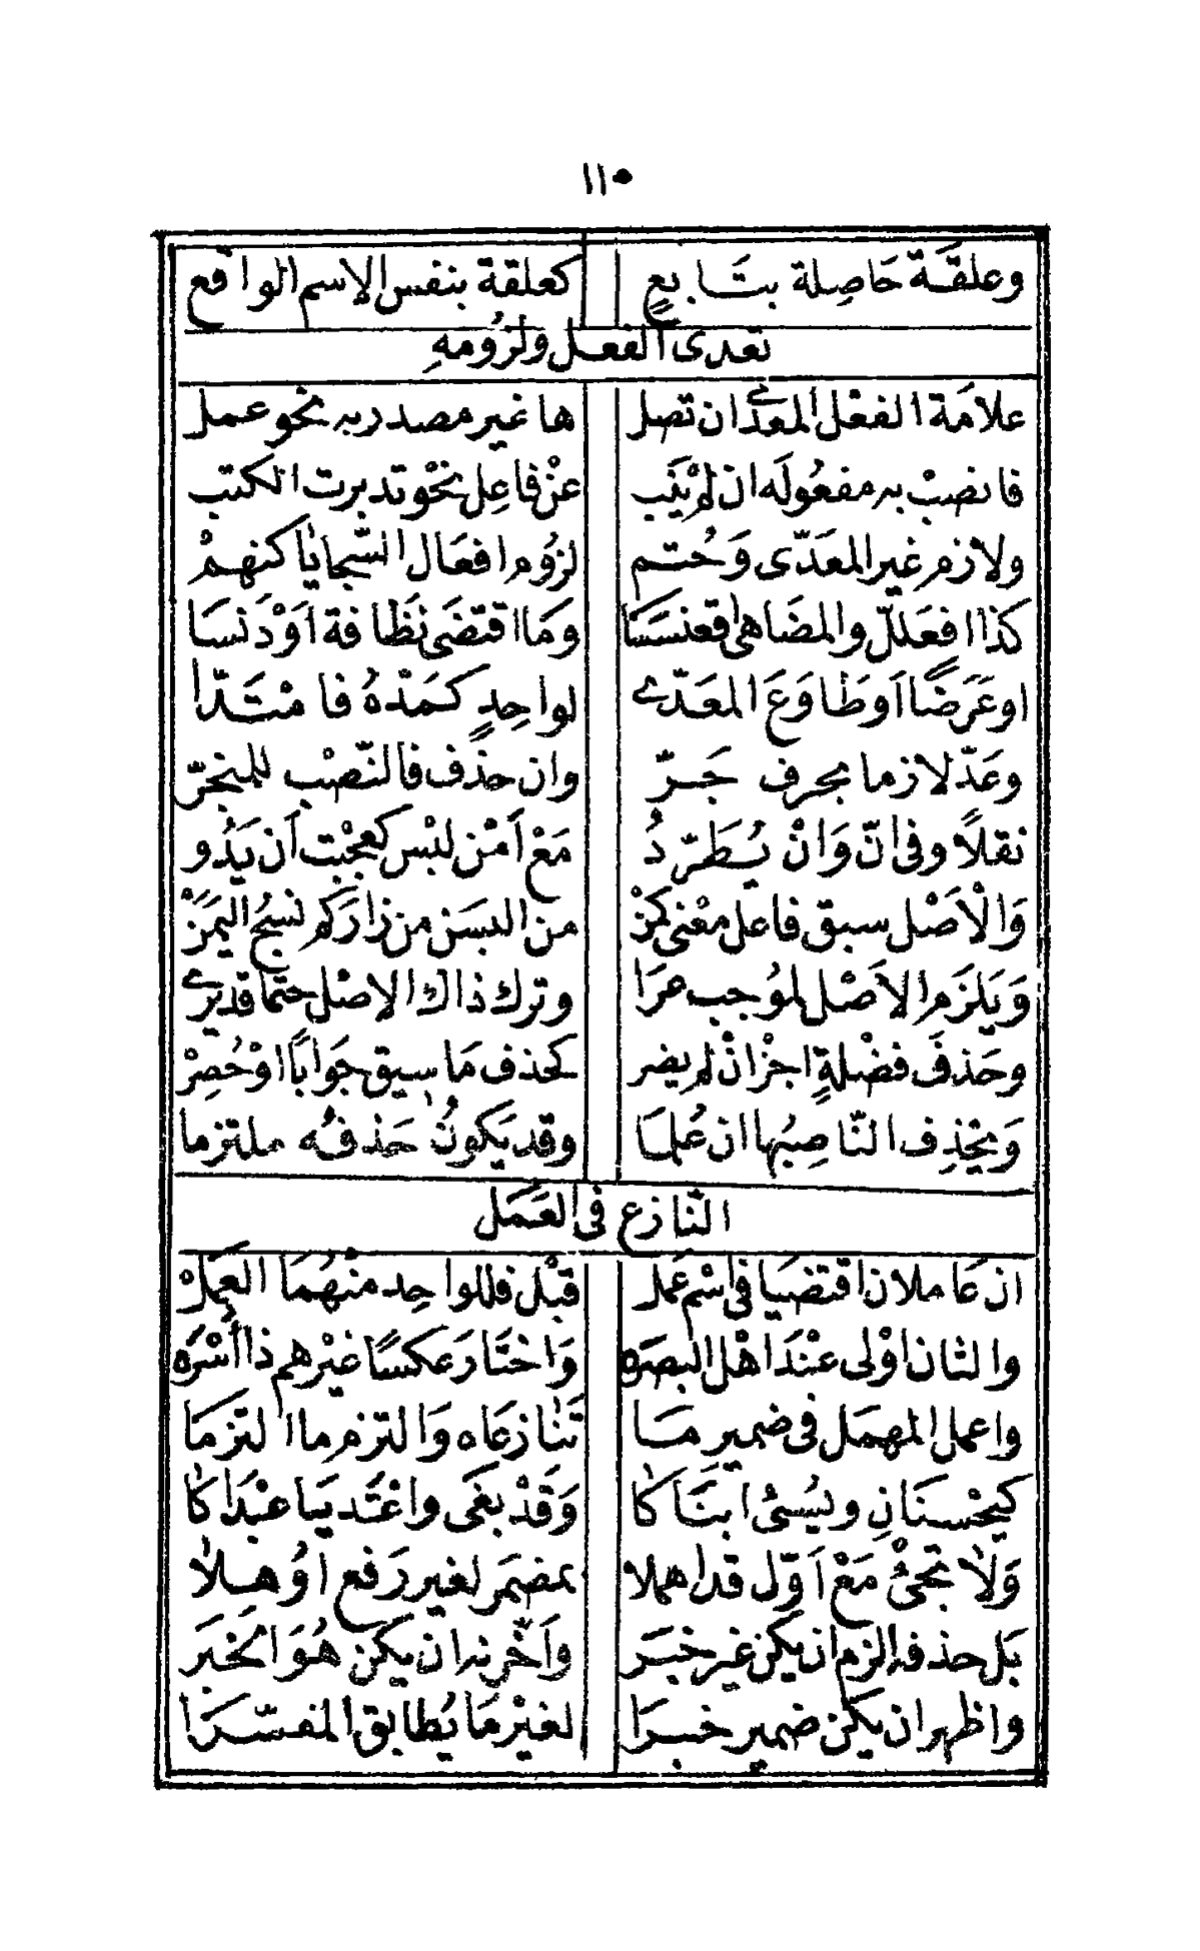 ١١٠
وعلقَة حَاصِلة بتَابعٍ كعلقة بنفس الاسم الواقع
تعدى الفعل ولزُومهِ
علامَة الفعْل المعدّے ان تصل ها غير مصدر به نحو عمل
فانصبْ به مفعُولَه ان لمْ يَنُب عنْ فاعِل نحْو تدبرت الكتب
ولازم غير المعَدّى وَحُتم لزُوم افعَال السّجايَا كنهمْ
كذا افعَللّ والمضَاهى اقعنسَسَا وَمَا اقتضَى نَظَافة اَوْ دَنسَا
او عَرَضًا اَو طَاوَعَ المعَدّے لواحِدٍ كمَدّهُ فامْتَدّا
وعَدّ لازما بحرف جَرّ وان حذف فالنّصْب للمنجرّ
نقلاً وفى انّ وَانْ يُطَرّدُ مَعْ اَمْن لبْس كعجبْت اَن يَدُو
وَالْاَصْل سبق فاعل معْنى كمَنْ من البسَن من زاركم نسْجُ اليَمَنْ
وَيَلزَم الاَصْل لموُجب عرَا وترك ذاك الاصْل حتمًا قد يرٰے
وحَذفَ فضْلةٍ اجْزانْ لم يضر كحذف مَا سِيق جَوابًا اوْ حُصِرْ
وَيحْذِف النّاصِبُها ان عُلمَا وقد يَكونُ حَذفُه ملتزما
التّنازع فى العَمَل
ان عَاملان اقتضَيا فى اسْم عَمل قبْل فللواحِد منْهُمَا العَمَلْ
والثان اوْلى عنْدَ اهْل البصَره وَاختَارَ عكسًا غيْرهم ذا اُسْرَه
واعمل المهمَل فى ضمير مَا تَنَازعَاه وَالتزم ما التزمَا
كيحْسنَانِ ويُسئُ ابنَاكَا وَقَدْ بغَى واعْتَديَا عبْدَاكَا
وَلَا تجئْ مَعْ اَوّل قد اهملا بمضمَر لغير رَفع اوُهِلَا
بَل حذفه الزم ان يَكن غير خبَر وَاَخّرنه ان يكن هُوَ الخبَر
واظهر ان يكن ضمير خبرَا لغيْر مَا يُطابق المفسّرَا